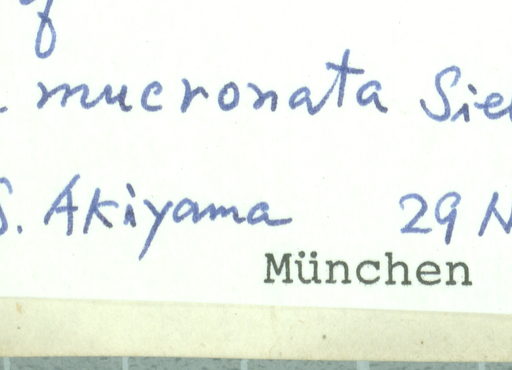 mucronata Sie
S. Akiyama 29 N
München